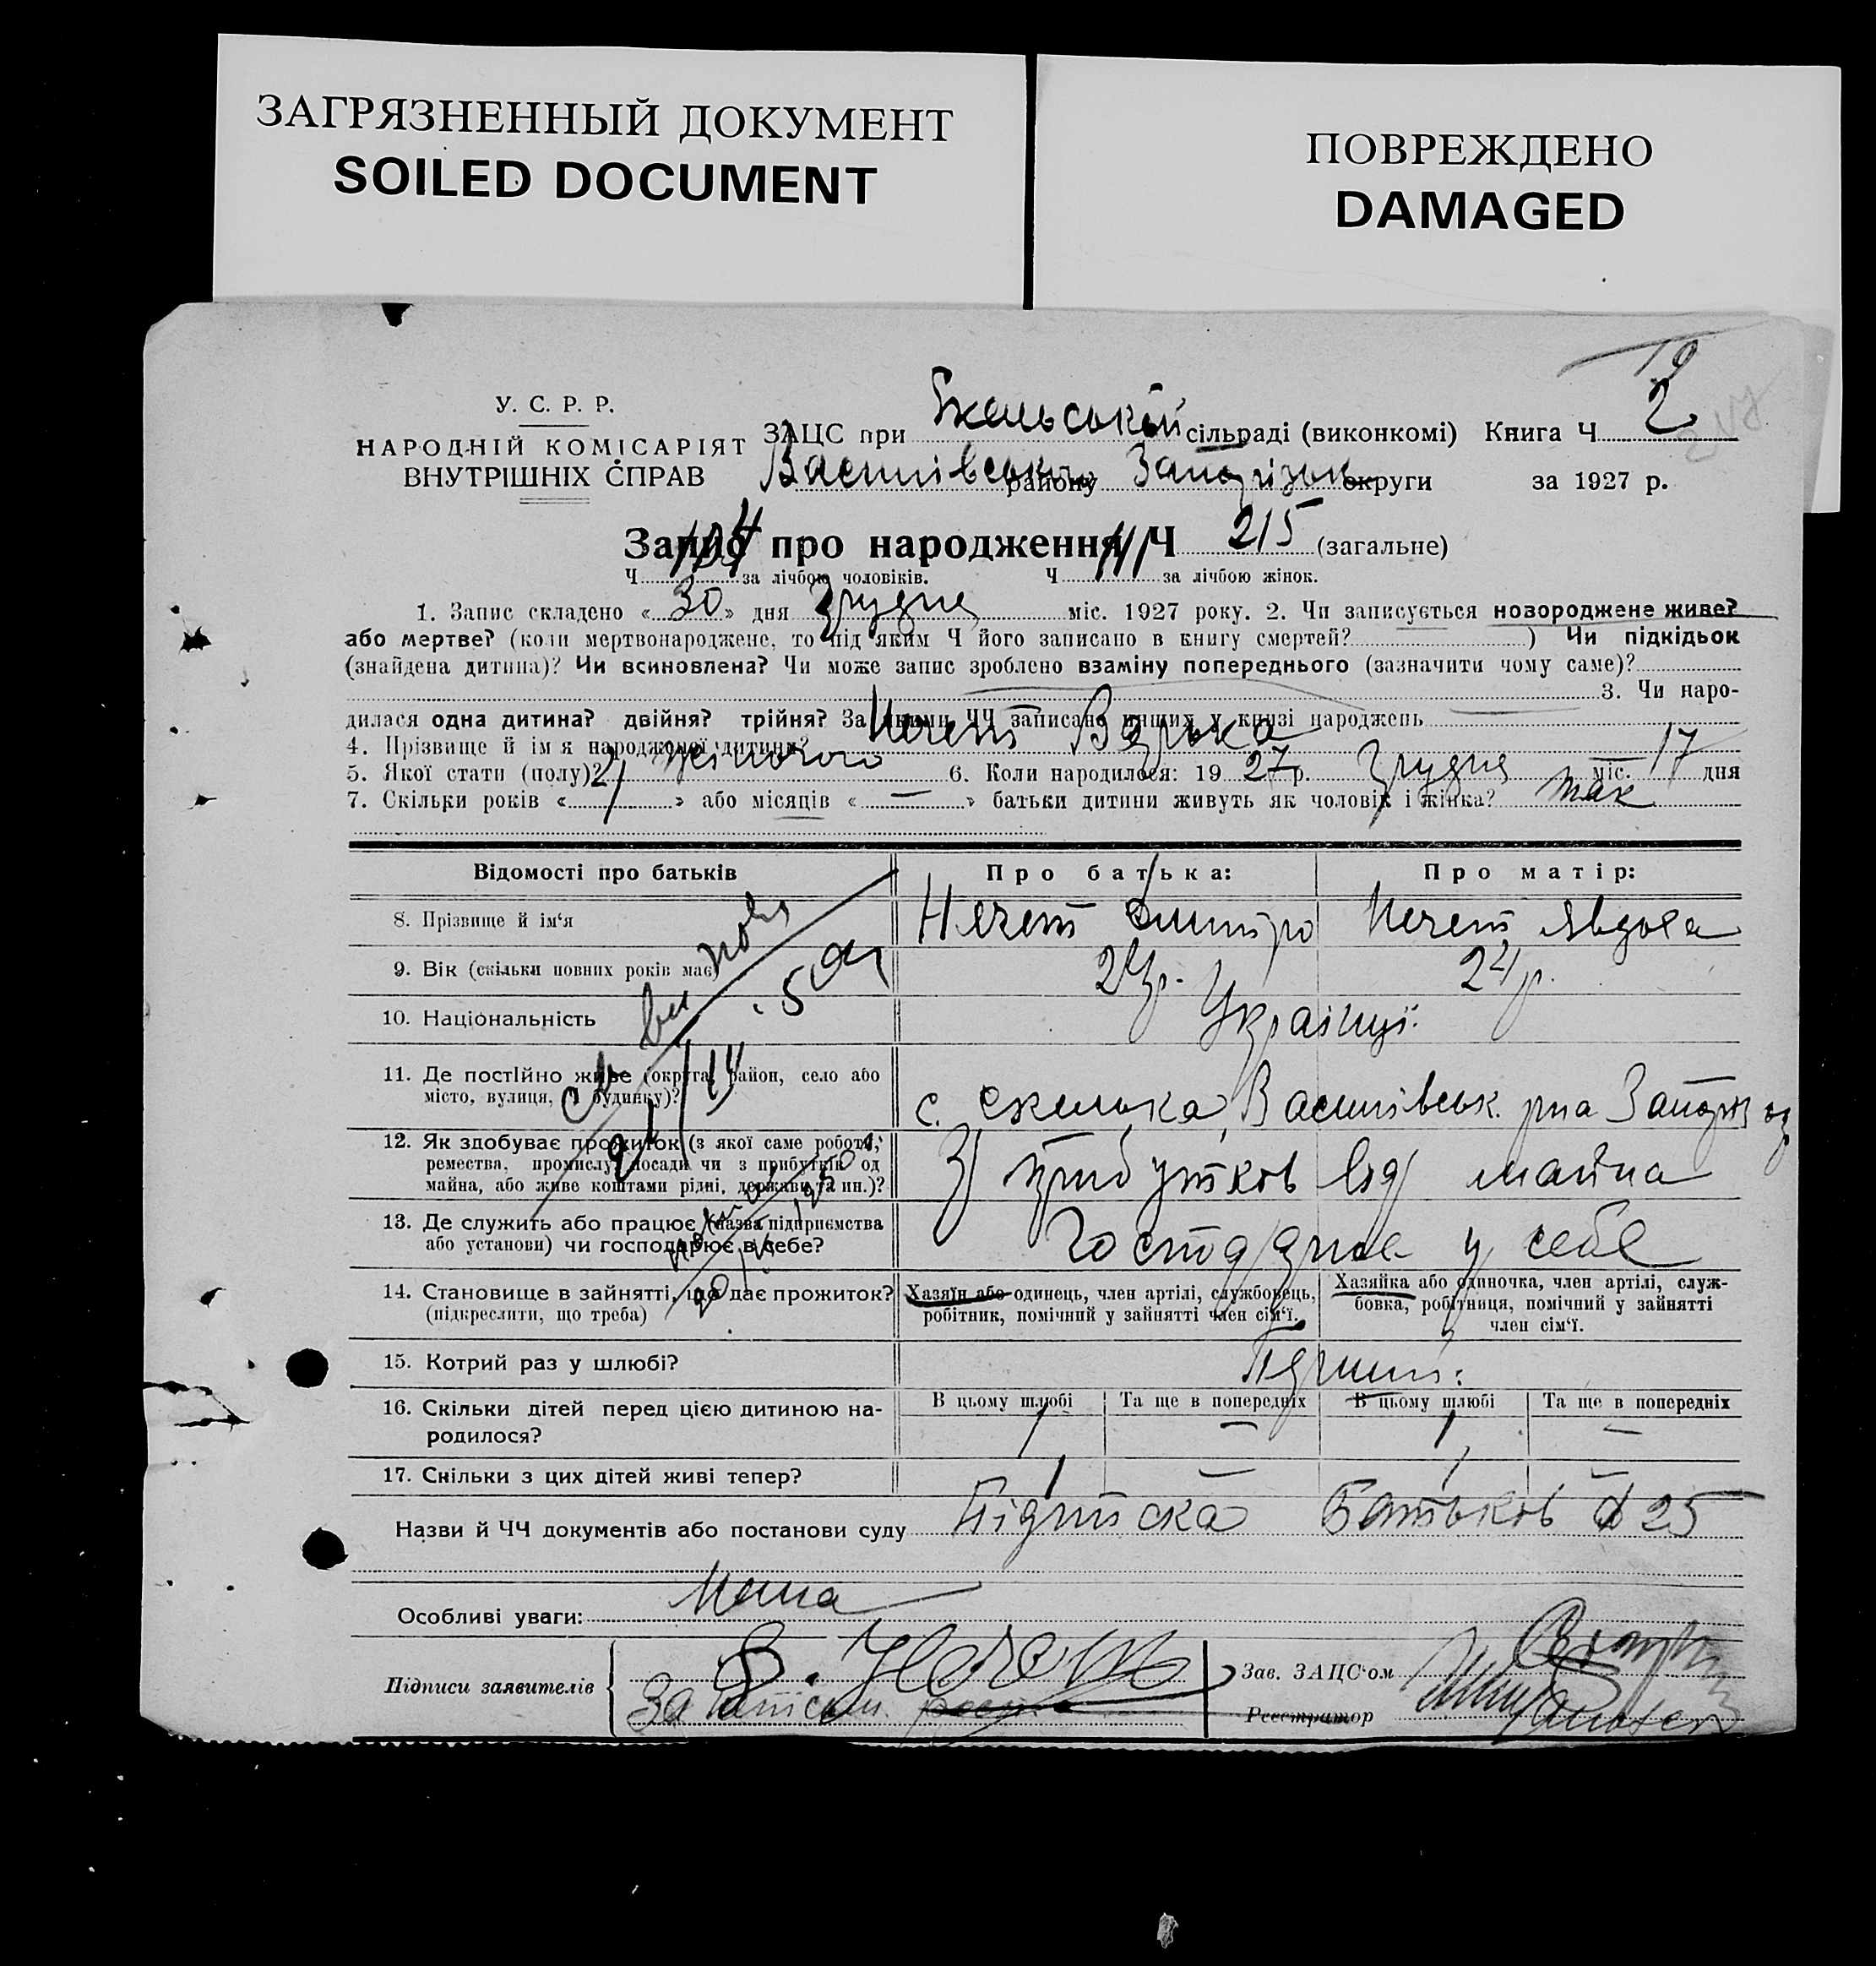 ЗАГРЯЗНЕННЫЙ ДОКУМЕНТ
SOILED DOCUMENT
ПОВРЕЖДЕНО
DAMAGED
19
У. С. Р. Р.
НАРОДНІЙ КОМІСАРІЯТ
ВНУТРІШНІХ СПРАВ
ЗАЦС при сільраді (виконкомі) Книга Ч 2
Василівськ району Запорізьк округи за 1927 р.
Запис про народження Ч 215 (загальне)
Ч 104 за лічбою чоловіків. Ч 111 за лічбою жінок.
1. Запис складено « 30 » дня Грудня міс. 1927 року. 2. Чи записується новороджене живе?
або мертве? (коли мертвонароджене, то під яким Ч його записано в книгу смертей? ) Чи підкідьок
(знайдена дитина)? Чи всиновлена? Чи може запис зроблено взаміну попереднього (зазначити чому саме)?
3. Чи наро-
дилася одна дитина? двійня? трійня? За якими ЧЧ записано инших у книзі народжень
4. Прізвище й ім'я народженої дитини? Нечет Вірька
5. Якої стати (полу)? жіночого 6. Коли народилося: 19 27 р. Грудня міс. 17 дня
7. Скільки років « 4 » або місяців « — » батьки дитини живуть як чоловік і жінка? так
Відомості про батьків Про батька: Про матір:
8. Прізвище й ім'я Нечет Дмитро Нечет Явдоха
9. Вік (скільки повних років має) 24 р. 24 р.
10. Національність Українці
11. Де постійно живе (округа, район, село або
місто, вулиця, Ч будинку)? с. Скелька Василівськ. р-на Запоріж ок
12. Як здобуває прожиток (з якої саме роботи,
ремества, промислу, посади чи з прибутків од
майна, або живе коштами рідні, держави та ин.)? З прибутков від майна
13. Де служить або працює (назва підприємства
або установи) чи господарює в себе? Господарює у себе
14. Становище в зайнятті, що дає прожиток?
(підкреслити, що треба)
Хазяїн або одинець, член артілі, службовець,
робітник, помічний у зайнятті член сім'ї.
Хазяйка або одиночка, член артілі, служ-
бовка, робітниця, помічний у зайнятті
член сім'ї.
15. Котрий раз у шлюбі? Перший
16. Скільки дітей перед цією дитиною на-
родилося?
В цьому шлюбі Та ще в попередніх В цьому шлюбі Та ще в попередніх
1 — 1 —
17. Скільки з цих дітей живі тепер? 1 — 1 —
Назви й ЧЧ документів або постанови суду Підписка Батьков 25
Особливі уваги: Нема
Підписи заявителів Нечет
Зав. ЗАЦС'ом
Реєстратор